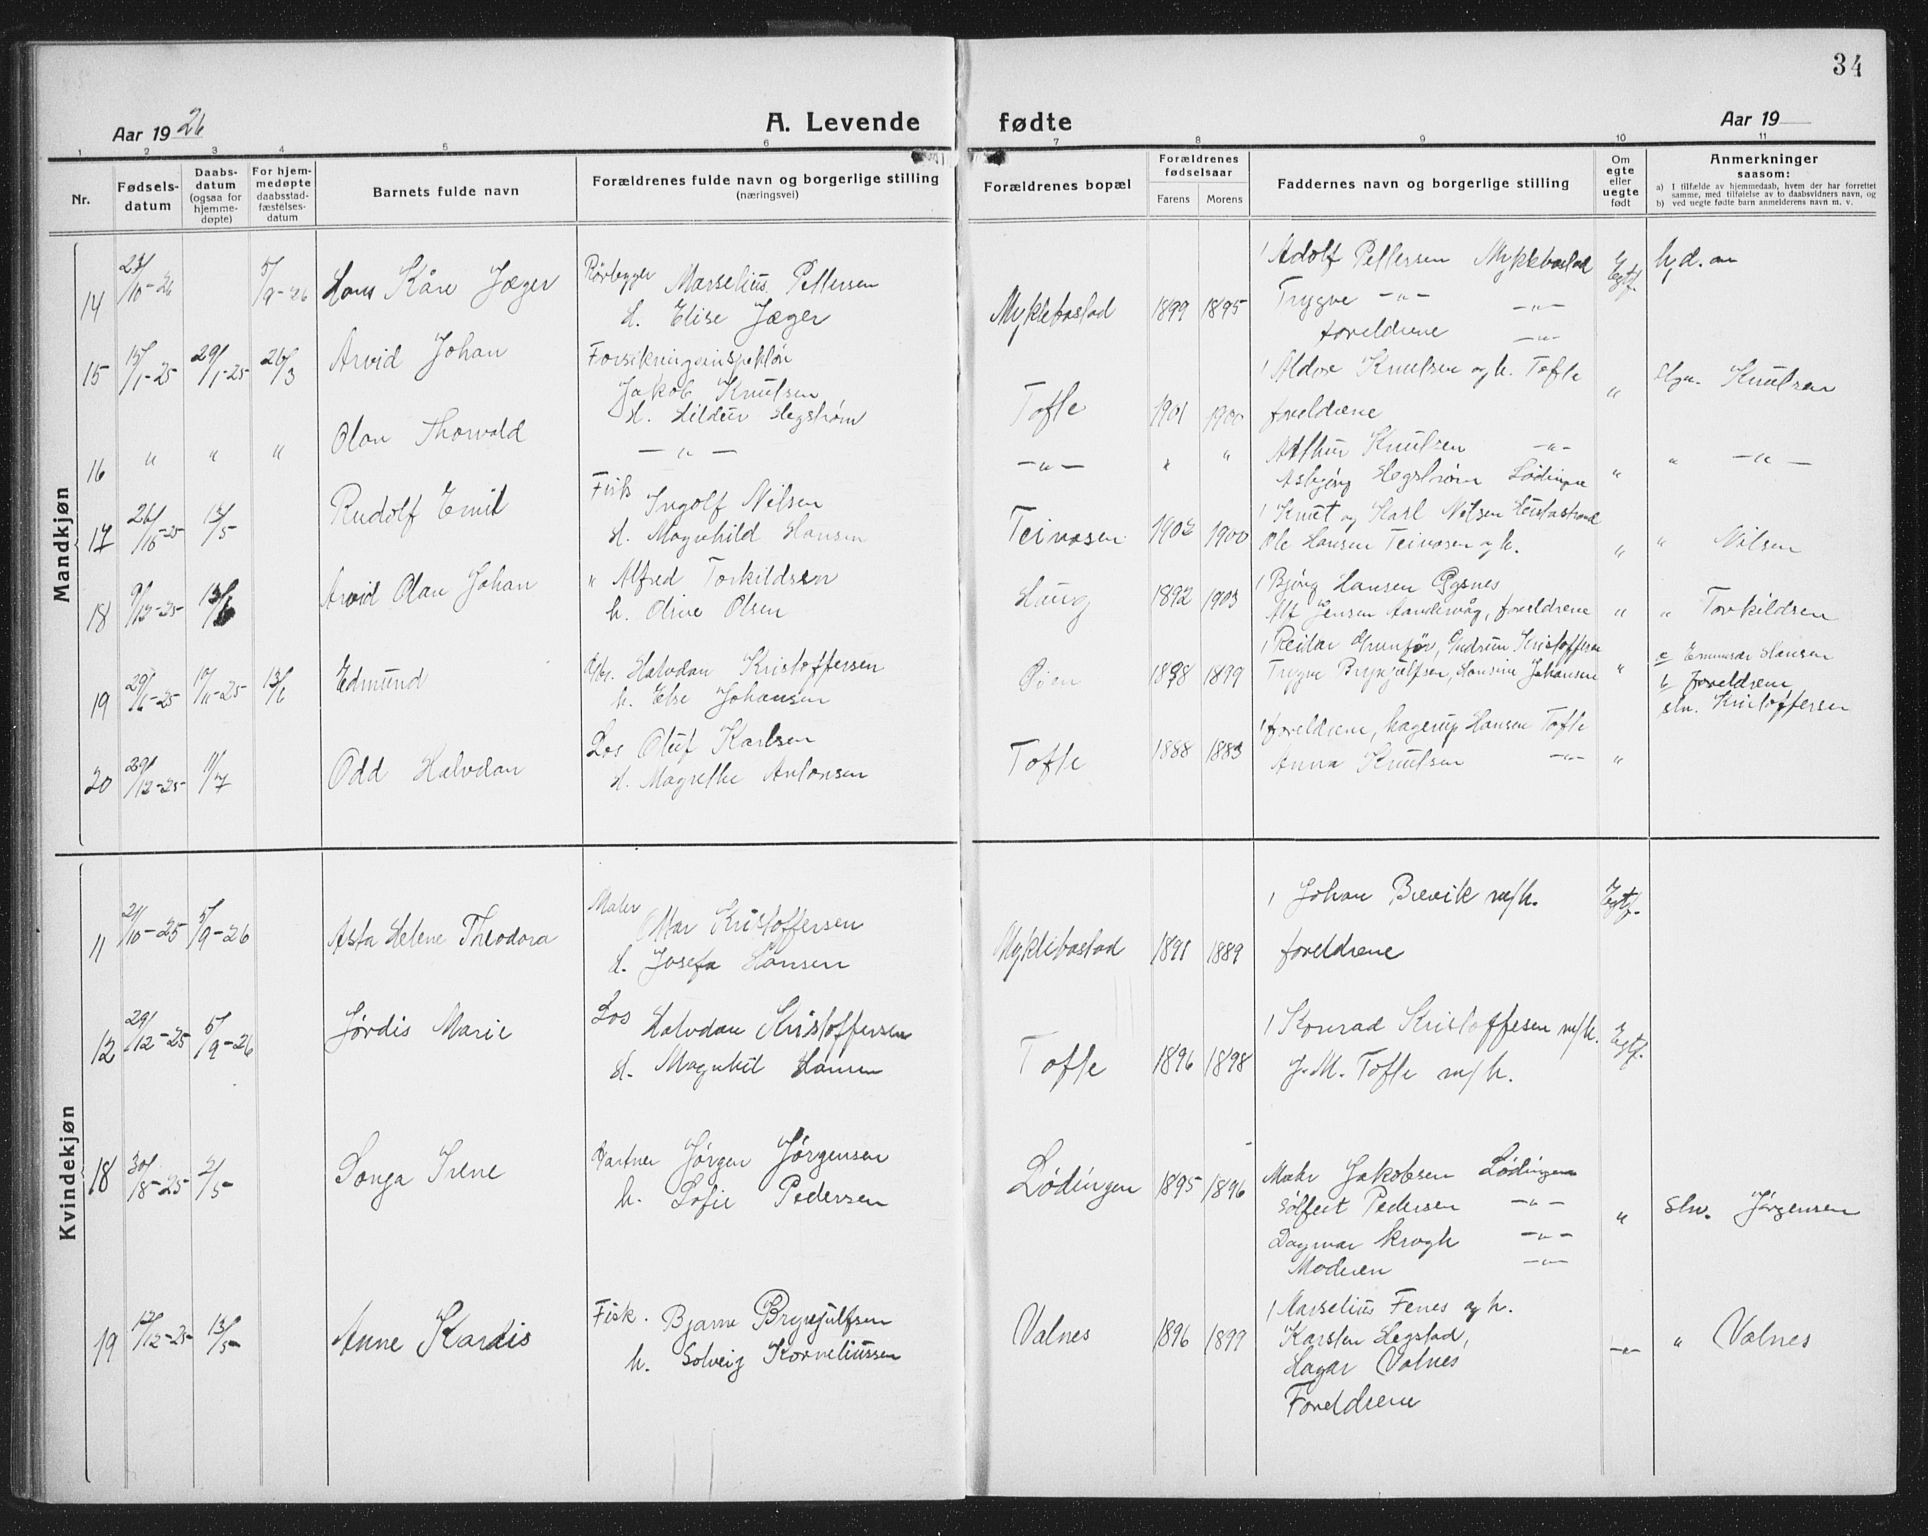 34
Aar 1926
A. Levende fødte
Aar 19
1 2 3 4 5 6 7 8 9 10 11
Nr.
Fødsels-
datum
Daabs-
datum
(ogsaa for
hjemme-
døpte)
For hjem-
medøpte
daabsstad-
fæstelses-
datum
Barnets fulde navn
Forældrenes fulde navn og borgerlige stilling
(næringsvei)
Forældrenes bopæl
Forældrenes
fødselsaar
Farens Morens
Faddernes navn og borgerlig stilling
Om
egte
eller
uegte
født
Anmerkninger
saasom:
a) I tilfælde av hjemmedaab, hvem der har forrettet
samme, med tilføielse av to daabsvidners navn, og
b) ved uegte fødte barn anmelderens navn m. v.
Mandkjøn
14 23/10-26 5/9-26 Hans Kåre Jæger
Rørbygger Marselius Pettersen
h. Elise Jæger
Myklebostad 1899 1895
Adolf Pettersen Myklebostad
Trygve -"- -"-
foreldrene -"-
Egtf. hjd. av
15 15/1-25 29/1-25 26/3 Arvid Johan
Jakob Knutsen
h. Hildur Hegstrøm
Tofte 1901 1900
Aldor Knutsen og h. Tofte
foreldrene
" slgn. Knutsen
16 " " " Olav Thorvald
-"-
-"- " "
Arthur Knutsen -"-
Asbjørg Hegstrøm Lødingen
" " -"-
17 26/10-25 13/5 Rudolf Emil
Fisk Ingolf Nilsen
h. Magnhild Hansen
Teinosen 1902 1900
Knut og Karl Nilsen
Ole Hansen Teinosen og h.
" " Nilsen
18 9/12-25 13/6 Arvid Olav Johan
" Alfred Torkildsen
h. Oline Olsen
Haug 1892 1903
Bjørg Hansen
Alf Jensen foreldrene
" " Torkildsen
19 29/6-25 10/11-25 13/6 Edmund
Halvdan Kristoffersen
h. Else Johansen
Øien 1898 1899
Reidar Gudrun Kristoffersen
Trygve Brynjulfsen, Hansine Johansen
" Hansen
b foreldrene
sln. Kristoffersen
20 29/12-25 11/7 Odd Halvdan
Los Oluf Karlsen
h. Magrethe Antonsen
Tofte 1888 1883
foreldrene, Hagerup Hansen Tofte
Anna Knutsen -"-
"
Kvindekjøn
11 21/10-25 5/9-26 Asta Helene Theodora
Maler Ottar Kristoffersen
h. Josefa Hansen
Myklebostad 1891 1889
Johan Brevik m/h.
foreldrene
Egtf.
12 29/12-25 5/9-26 Jørdis Marie
Los Halvdan Kristoffersen
h. Magnhil Hansen
Tofte 1896 1898
Konrad Kristoffesen m/h.
J. M. Tofte m/h.
Egtf.
18 30/8-25 2/5 Sonja Irene
Gartner Jørgen Jørgensen
h. Sofie Pedersen
Lødingen 1895 1896
Jakobsen Lødingen
Sølfest Pedersen -"-
Dagmar Krogh -"-
Moderen -"-
" sln. Jørgensen
19 12/12-25 13/5 Anne Kardis
Fisk. Bjarne Brynjulfsen
h. Solveig Korneliussen
Valnes 1896 1899
Marselius Fenes og h.
Karsten Hegstad,
Hagar Valnes
Foreldrene
-"- " Valnes